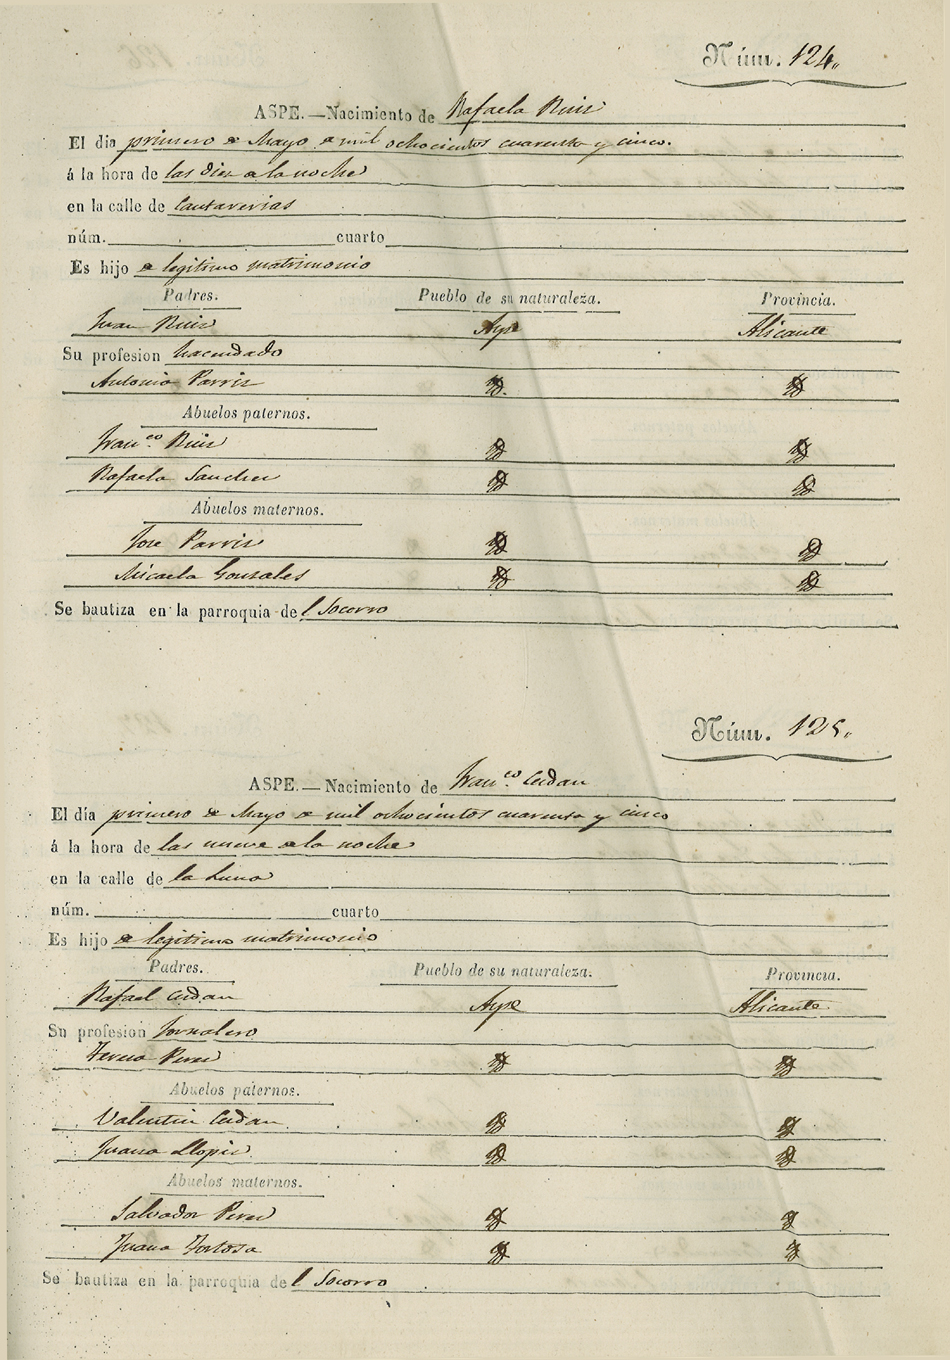 Núm. 124.
ASPE.—Nacimiento de Rafaela Ruiz
El dia primero de Mayo de mil ochocientos cuarenta y cinco.
á la hora de las diez de la noche
en la calle de Cantarerias
núm. cuarto
Es hijo de legitimo matrimonio
Padres. Pueblo de su naturaleza. Provincia.
Juan Ruiz Aspe Alicante
Su profesion hacendado
Antonia Parris id. id
Abuelos paternos.
Fran.co Ruiz id id
Rafaela Sanchez id id
Abuelos maternos.
Jose Parris id id
Micaela Gonzales id id
Se bautiza en la parroquia del Socorro
Núm. 125.
ASPE.—Nacimiento de Fran.co Cerdan
El día primero de Mayo de mil ochocientos cuarenta y cinco
á la hora de las nueve de la noche
en la calle de la Luna
núm. cuarto
Es hijo de legitimo matrimonio
Padres. Pueblo de su naturaleza. Provincia.
Rafael Cerdan Aspe Alicante
Su profesion Jornalero
Teresa Perez id id
Abuelos paternos.
Valentin Cerdan id id
Juana Llopis id id
Abuelos maternos.
Salvador Perez id id
Juana Tortosa id id
Se bautiza en la parroquia del Socorro